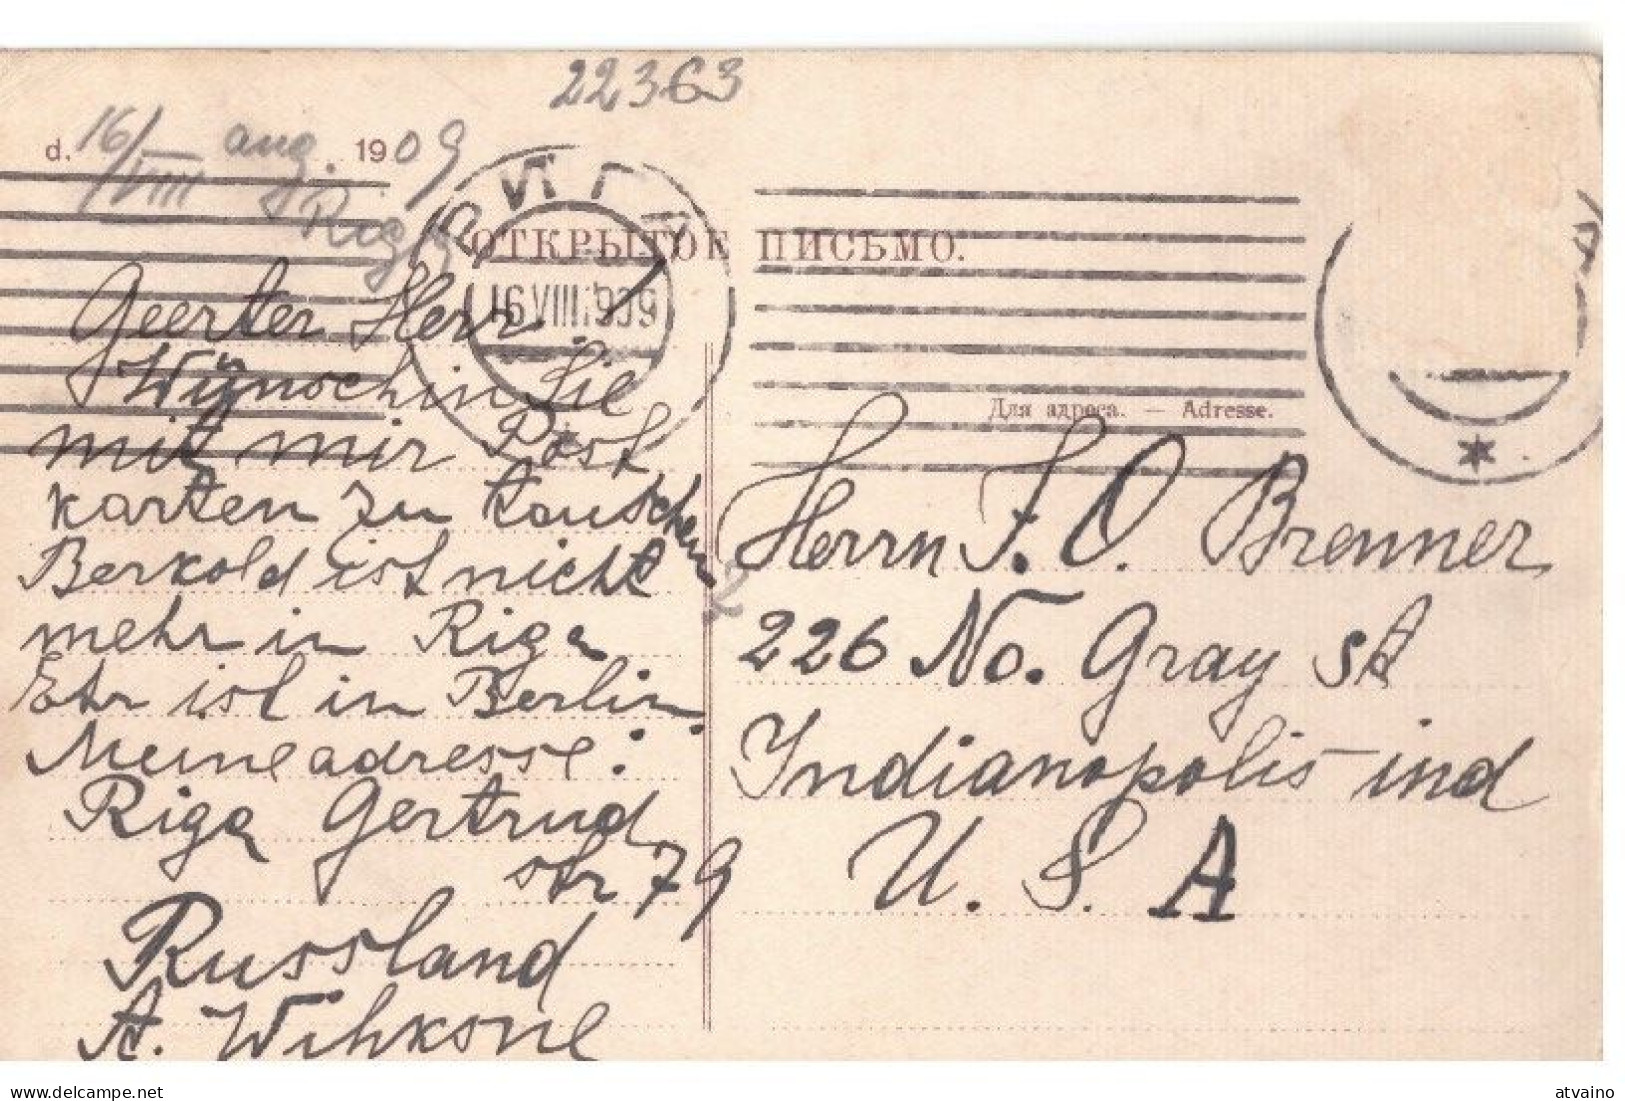 22363
d. 16/VIII aug. 1909
Riga
РИГА
ОТКРЫТОЕ ПИСЬМО.
16 VIII 1909
Geerter Herr
Wünschin Sie
mit mir Post
karten zu tauschen?
Berkold ist nicht
mehr in Riga
Ehr ist in Berlin.
Meine adresse:
Riga Gertrud
str 79
Russland
A. Wihksne
Для адреса. — Adresse.
Herrn J. O. Brenner
226 No. Gray st
Indianapolis ind
U. S. A
delcampe.net
atvaino